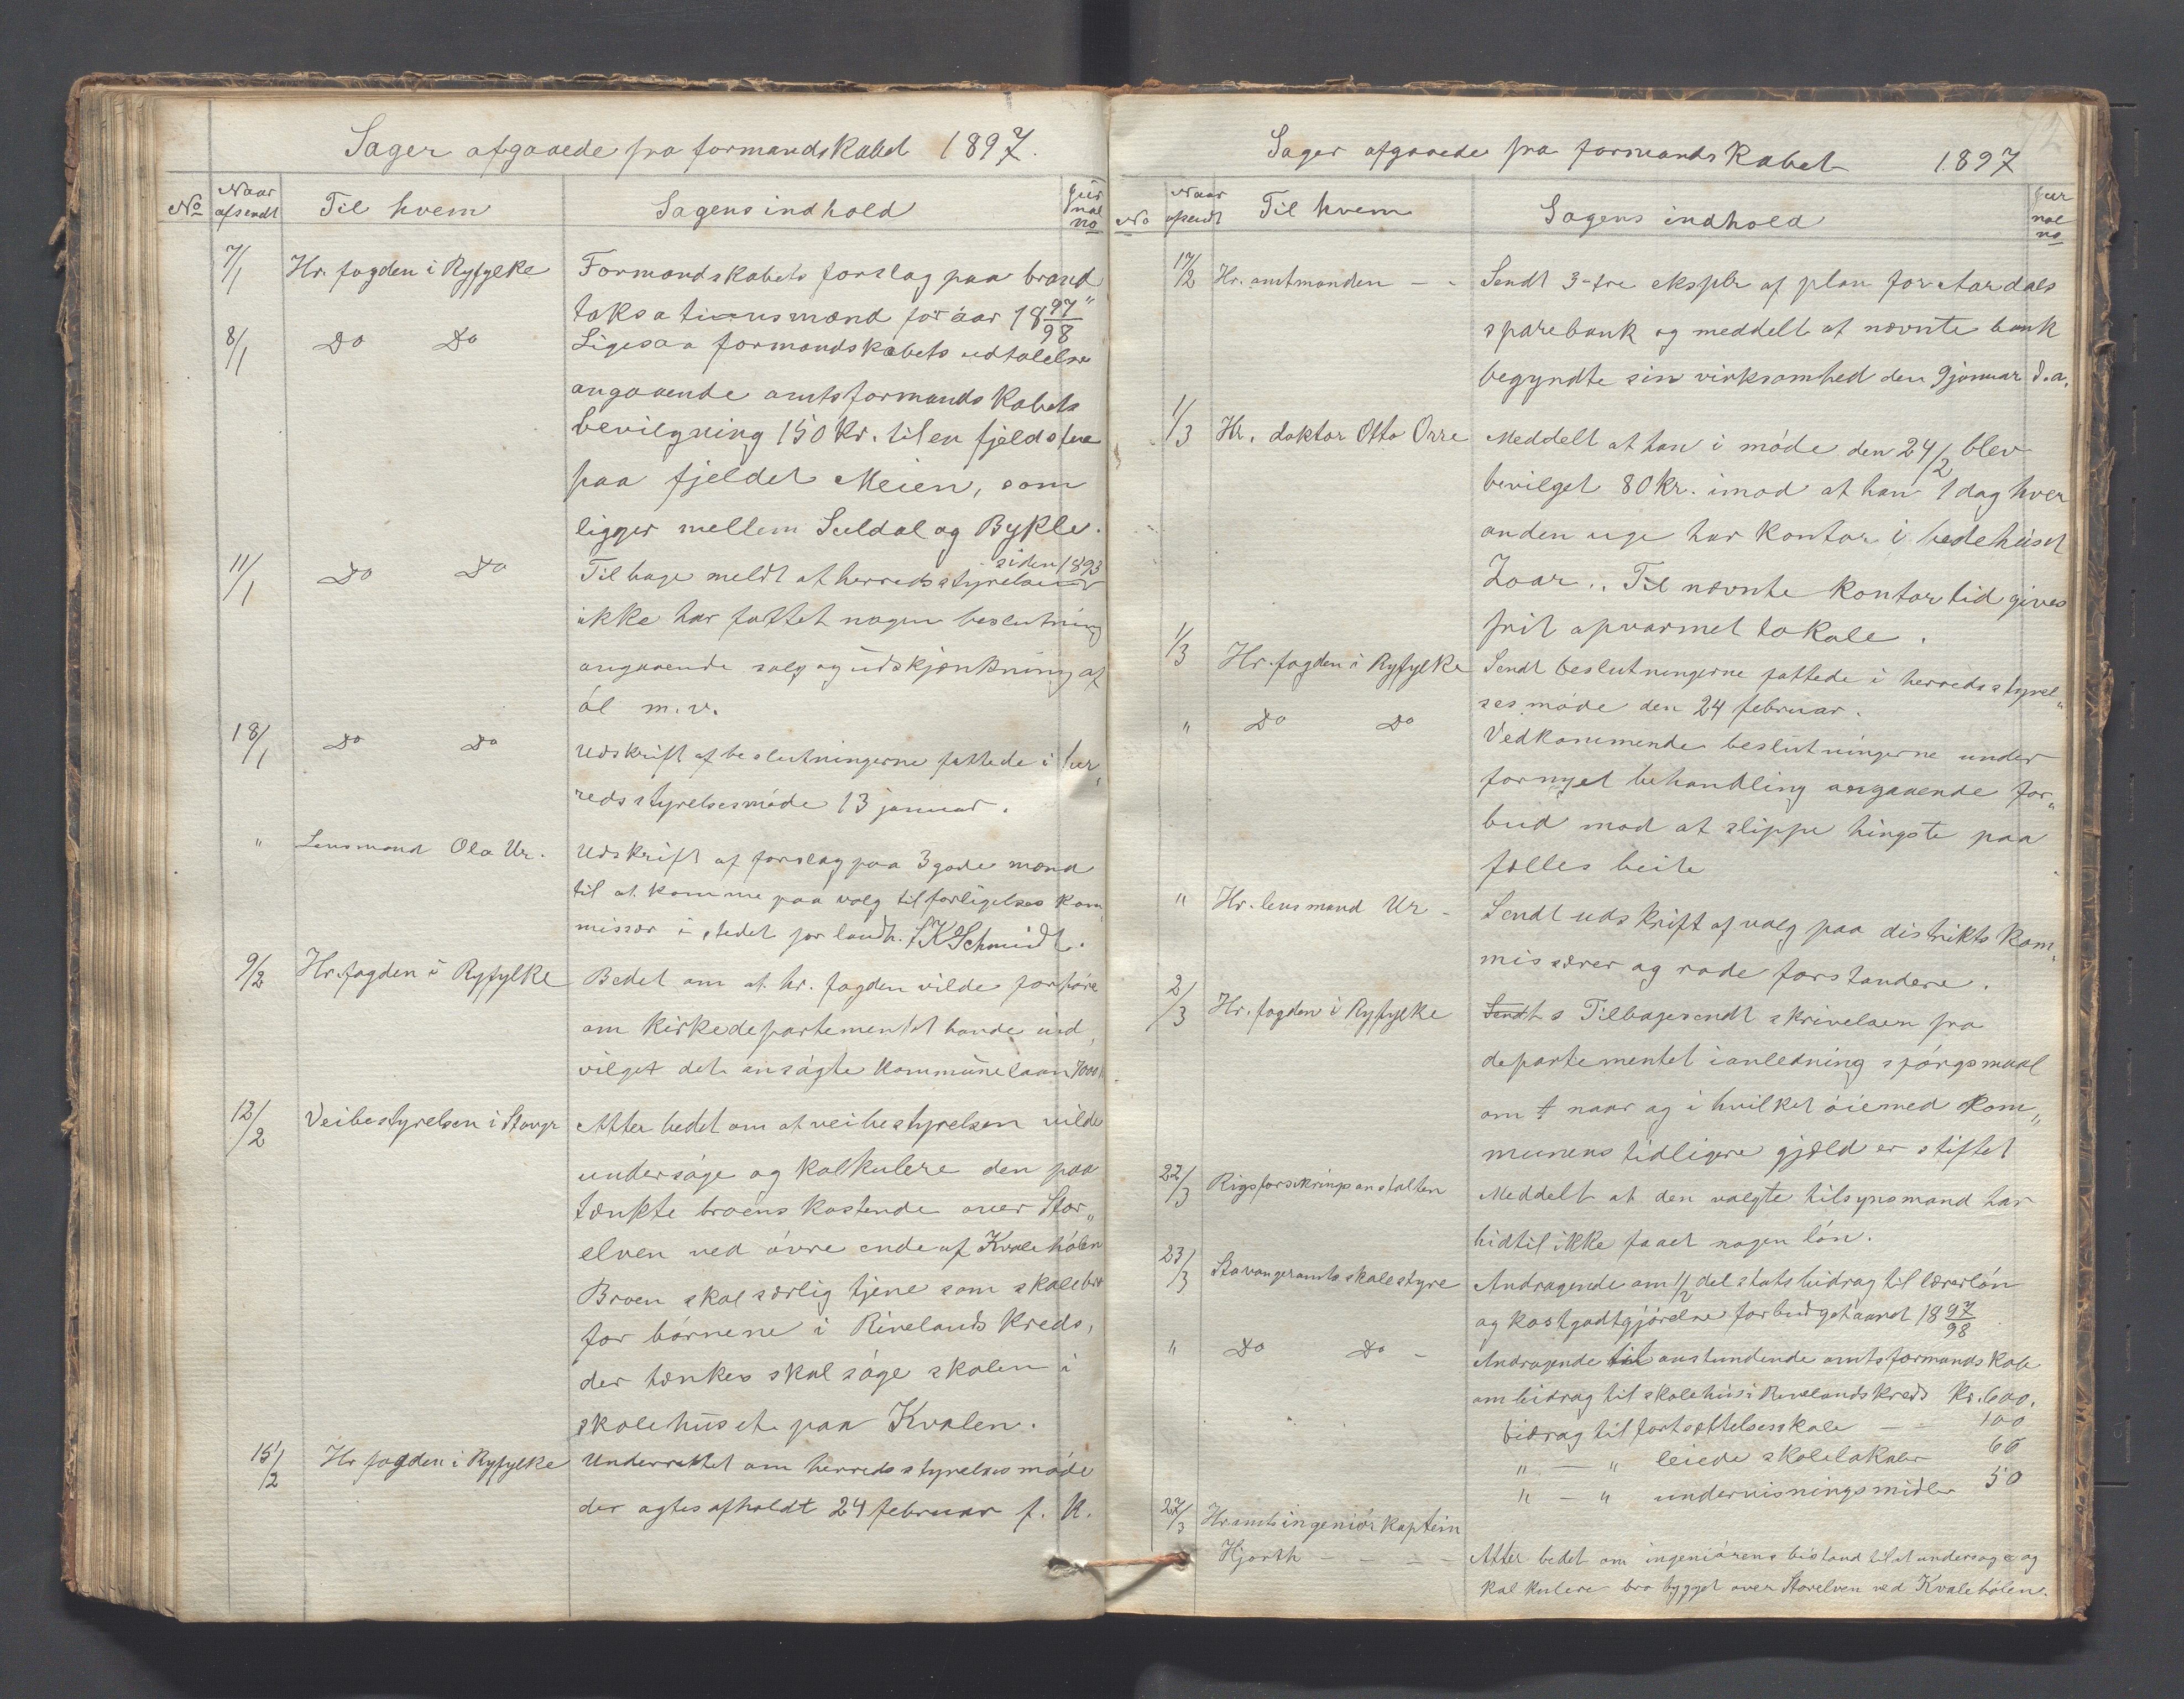 Sager afgaaede fra formandskabet 1897.
No
Naar afsendt
Til hvem
Sagens indhold
Jur nal no
7/1 Hr. fogden i Ryfylke Formandskabets forslag paa brand
taksationsmænd for aar 1897/98
8/1 Do Do Ligesaa formandskabets udtalelse
angaaende amtsformandskabets
bevilgning 150 kr. til en fjeldstue
paa fjeldet Meien, som
ligger mellem Suldal og Bykle.
siden 1893
11/1 Do Do Tilbage meldt at herredsstyrelsen
ikke har fattet nogen beslutning
angaaende salg og udskjænkning af
øl m.v.
18/1 Do Do Udskrift af beslutningerne fattede i her„
redsstyrelsesmøde 13 januar.
" Lensmand Ola Ur. Udskrift af forslag paa 3 gode mænd
til at komme paa valg til forligelses kom„
missær i stedet for landh. SK Schmidt.
9/2 Hr. fogden i Ryfylke Bedet om at hr. fogden vilde forhøre
om kirkedepartementet havde ind„
vilget det ansøgte kommunelaan 7000
12/2 Veibestyrelsen i Stavgr Atter bedet om at veibestyrelsen vilde
undersøge og kalkulere den paa
tænkte broens kostende over Stor„
elven ved øvre ende af Kvalehølen
Broen skal særlig tjene som skolebro
for børnene i Rivelands kreds,
der tænkes skal søge skolen i
skolehuset paa Kvalen.
15/2 Hr fogden i Ryfylke Underrettet om herredsstyrelses møde
der agtes afholdt 24 februar f. k.
Sager afgaaede fra formandskabet 1897
No
Naar afsendt
Til hvem
Sagens indhold
Jur nal no
17/2 Hr. amtmanden - - Sendt 3-tre eksplr af plan for Aardals
sparebank og meddelt at nævnte bank
begyndte sin virksomhed den 9 januar d.a.
1/3 Hr. doktor Otto Orre Meddelt at han i møde den 24/2 blev
bevilget 80 kr. imod at han 1 dag hver
anden uge har kontor i bedehuset
Zoar. Til nævnte kontortid gives
frit opvarmet lokale.
1/3 Hr. fogden i Ryfylke Sendt beslutningerne fattede i herredsstyrel„
sesmøde den 24 februar.
" Do Do Vedkommende beslutningerne under
fornyet behandling angaaende for„
bud mod at slippe hingste paa
fælles beite
" Hr. lensmand Ur - Sendt udskrift af valg paa distriktskom„
missærer og rodeforstandere.
2/3 Hr. fogden i Ryfylke Tilbagesendt skrivelsen fra
departementet i anledning spørgsmaal
om naar og i hvilket øiemed kom„
munens tidligere gjæld er stiftet
22/3 Rigsforsikringsanstalten Meddelt at den valgte tilsynsmand har
hidtil ikke faaet nogen løn.
23/3 Stavanger amts skolestyre Andragende om 1/2 del statsbidrag til lærerløn
og kostgodtgjørelse for budgetaaret 1897/98.
" Do Do - Andragende til anstundende amtsformandskab
om bidrag til skolehus i Rivelands kreds kr. 600.
bidrag til fortsættelsesskole - 100
" - " leiede skolelokaler 66
" - " undervisningsmidler 50
27/3 Hr amtsingeniør kaptein
Hjorth - - - - Atter bedet om ingeniørens bistand til at undersøge og
kalkulere bro bygget over Storelven ved Kvalehølen.